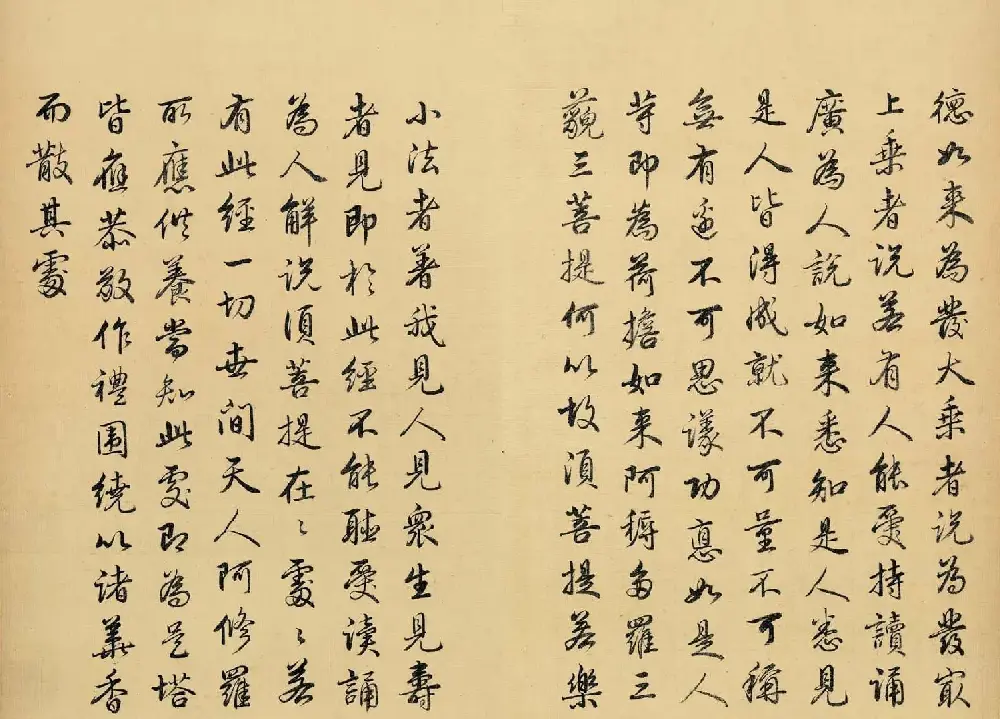 德如來為發大乘者說為發㝡
上乘者說若有人能受持讀誦
廣為人說如來悉知是人悉見
是人皆得成就不可量不可稱
無有邊不可思議功悳如是人
等即為荷擔如來阿耨多羅三
藐三菩提何以故須菩提若樂
小法者著我見人見眾生見壽
者見即於此經不能聽受讀誦
為人解說須菩提在〻處〻若
有此經一切世間天人阿修羅
所應供養當知此處即為是塔
皆應恭敬作禮圍繞以諸華香
而散其處